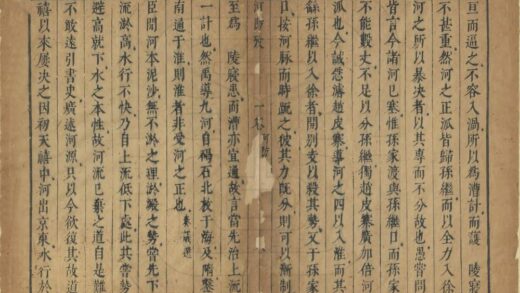 亘而逼之不容入渦所以爲漕計而護　陵寢
不甚重然河之正派皆歸孫繼而以全力入徐
河之所以暴决者以其專而不分故也愚嘗問
昔言今諸河已塞惟孫家渡與孫繼口而孫家
不能數丈不足以分孫繼獨趙皮寨廣加倍河
派也今誠憑濬趙皮寨導河之四以入淮而其
孫繼以入徐者開別支以殺其勢又于孫家
口按河脉而時之彼其力旣分則可以漸制
河防
至爲　陵寢患而漕亦宜通故言當先治上流
一計也然禹導九河自碣石北于海及隋鑿
南通于淮則淮者非受河之正也
臣聞河本泥沙無不淤之理淤之勢當先下
流淤高水行不快乃自上流低下處此其常勢
避高就下水之本性故河流已棄之道自是難
不敢遠引書史廣遠河源只以今欲復其故道
禧以來屢决之因初天禧中河出京東水行於